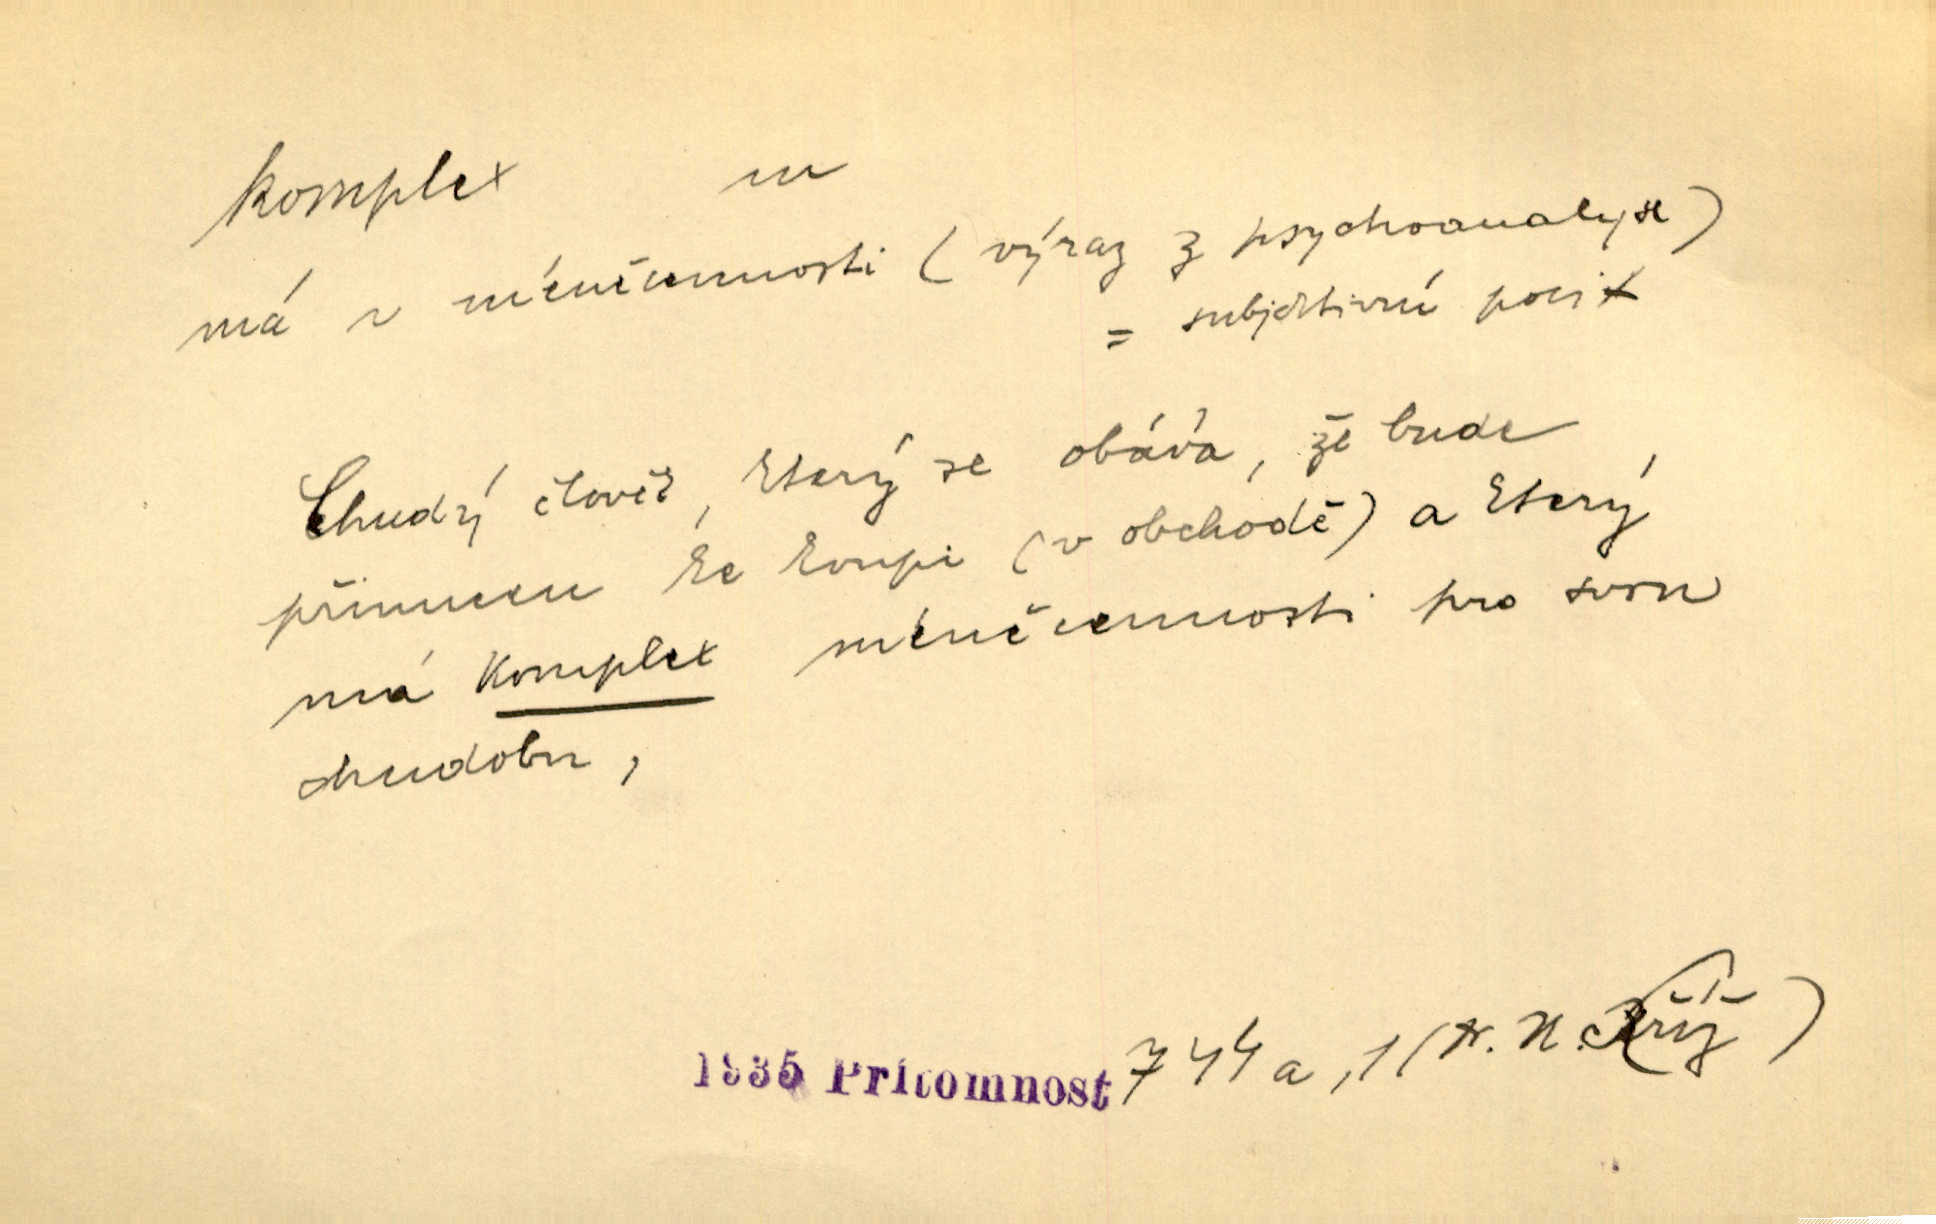 komplex m
má v méněcennosti (výraz z psychoanalyse)
= subjektivní pocit
Chudý člověk, který se obává, že bude
přinucen ke koupi (v obchodě) a který
má komplex méněcennosti pro svou
chudobu,
1935 Přítomnost 744a, 1 (A. N. Kříž)